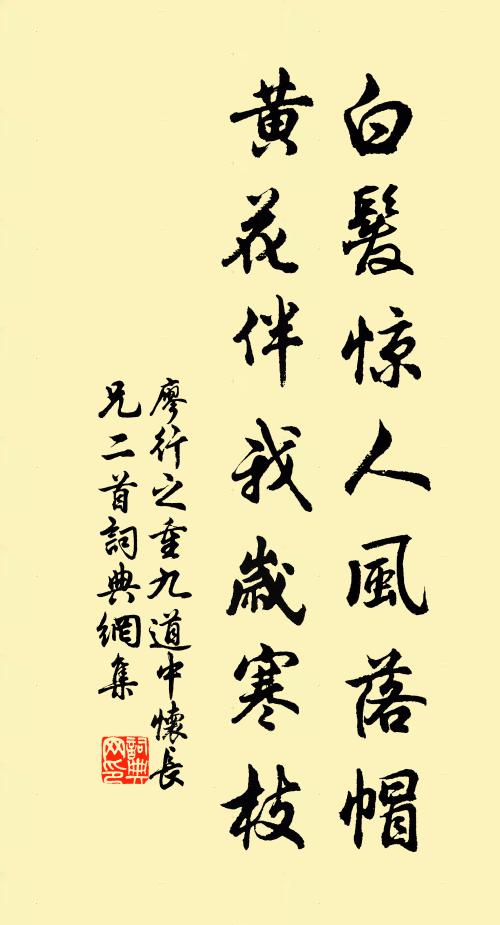 白髮惊人風落帽
黃花伴我歲寒枝
廖行之重九道中懷長
兄二首詞典網集
詞典
网印